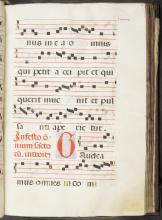 nus in e a o mnis
qui petit acci pit et qui
querit inue nit et pul
sa nti ape rie tur.
In festo o
nium scto
Gaudea
mus omnes in do mi